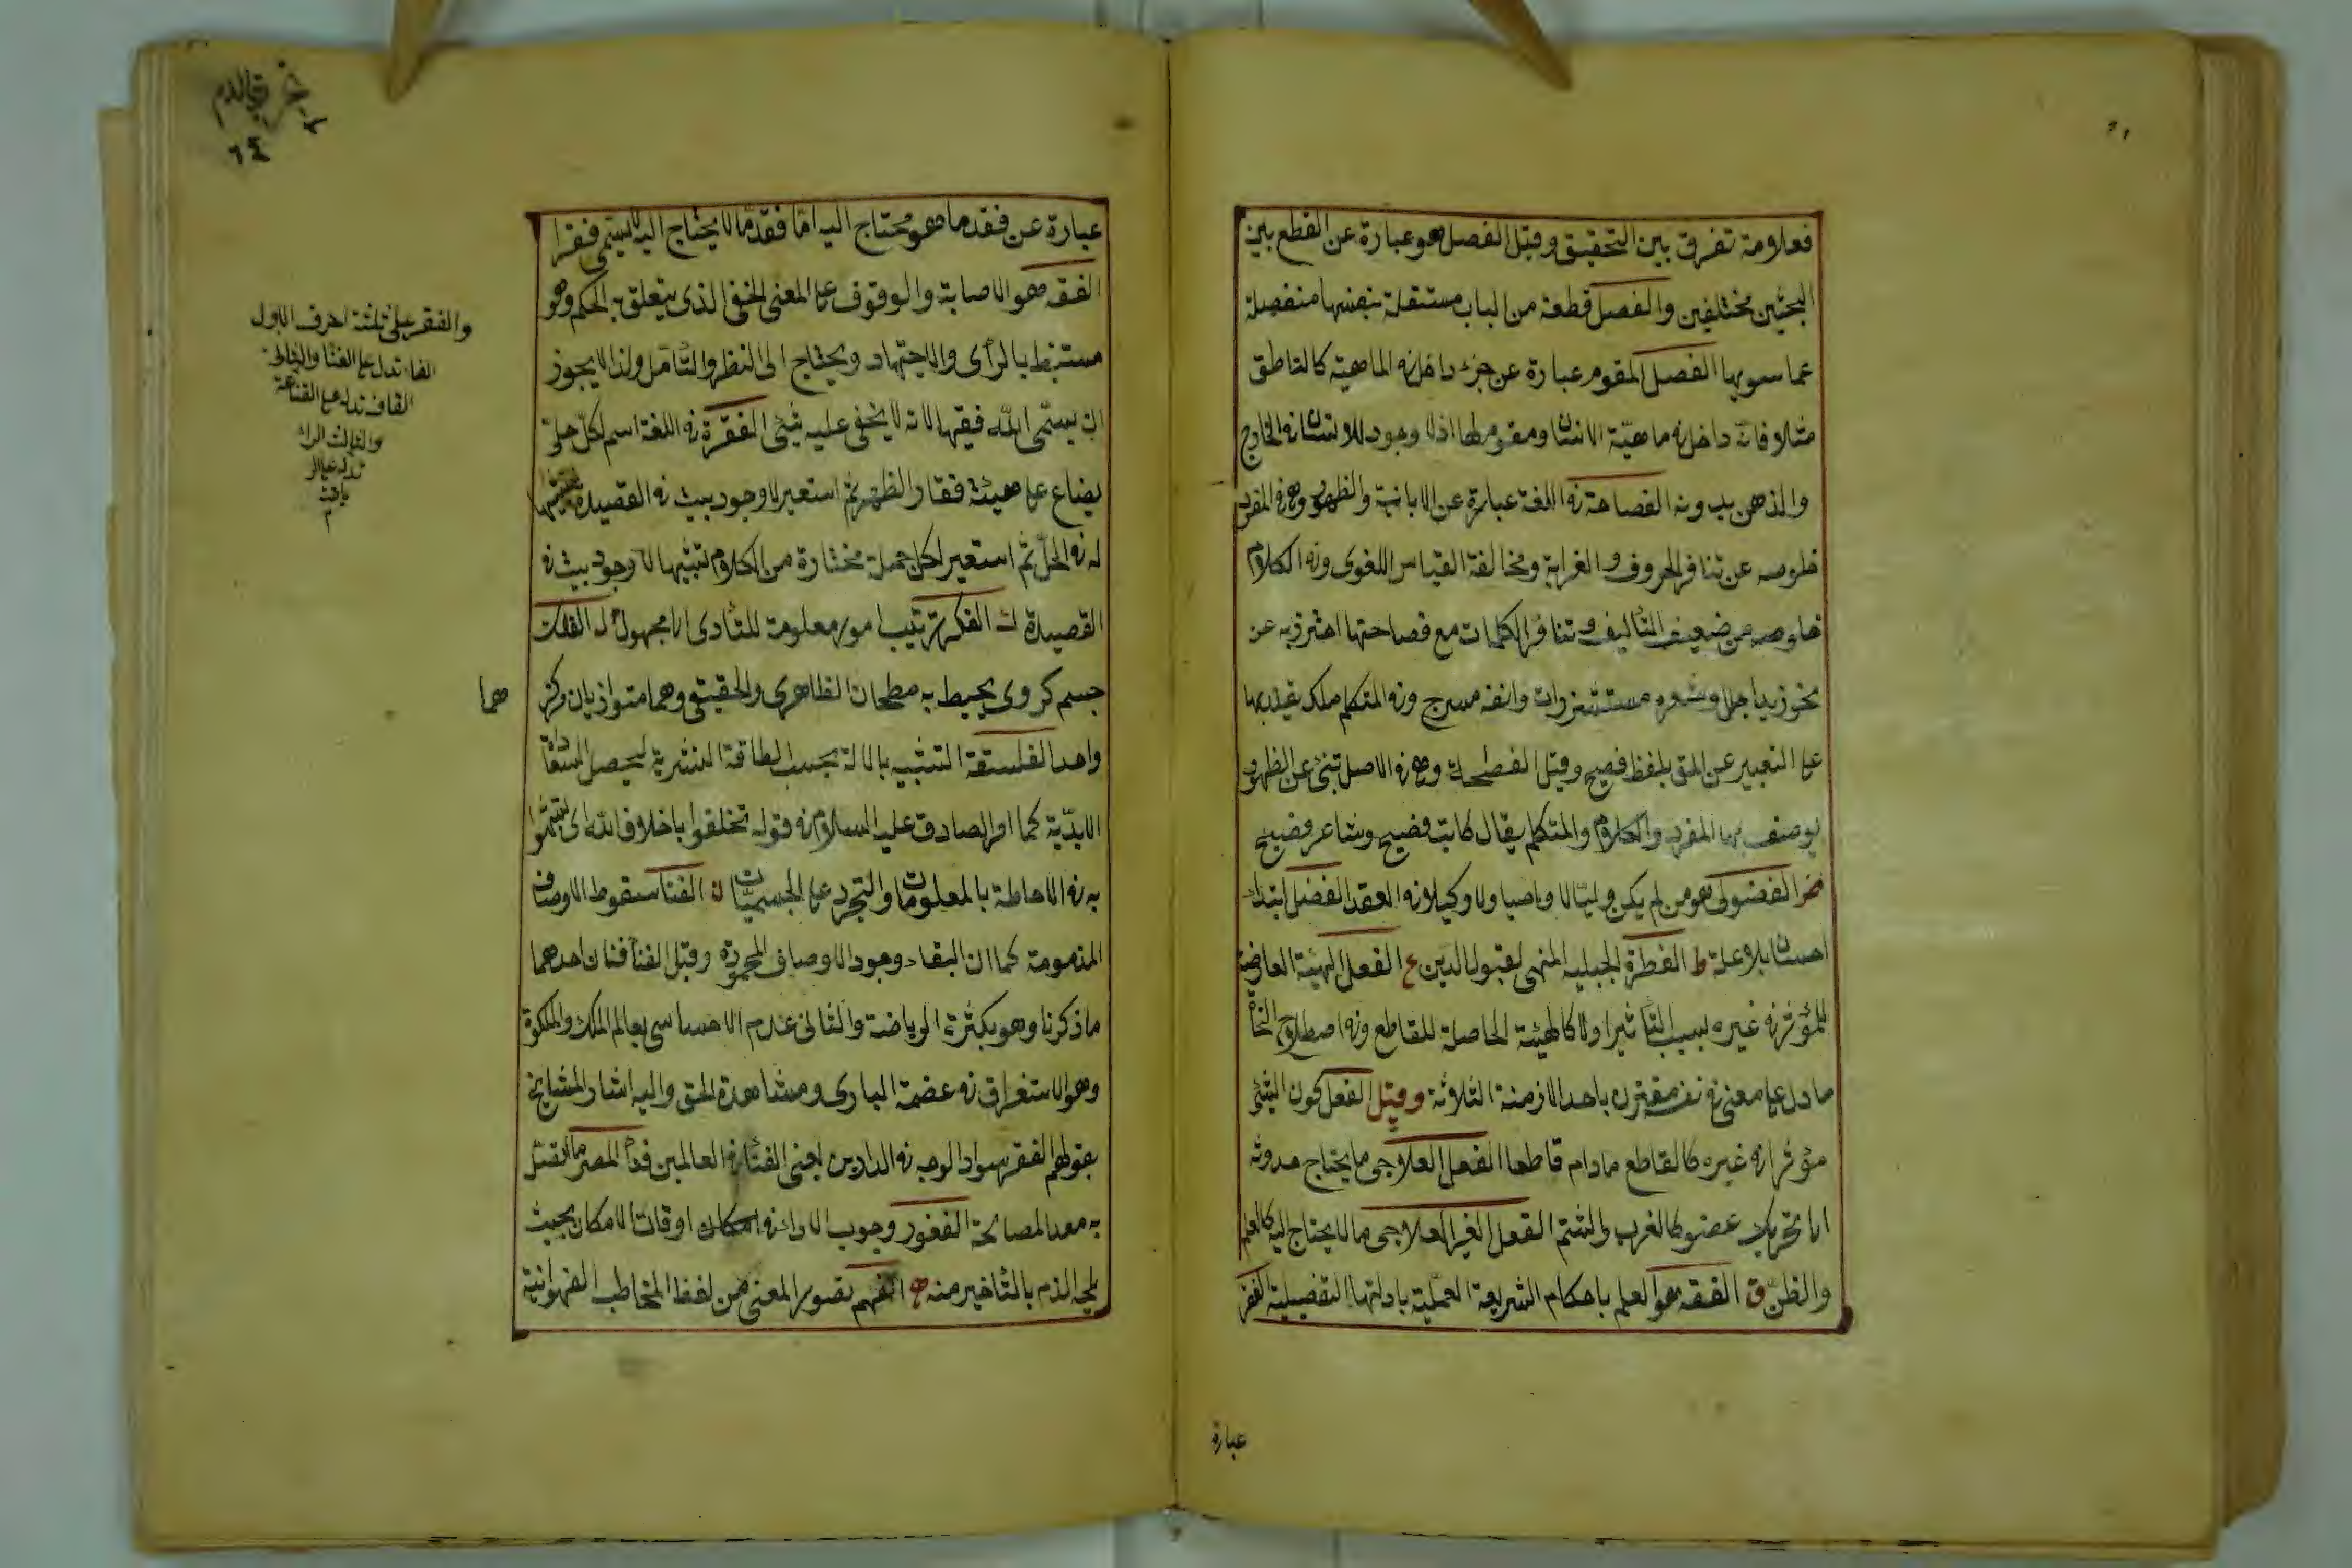 فعلومة تفرق بين التحقيق وقيل الفصل هو عبارة عن القطع بين
البحثين مختلفين والفصل قطعة من الباب مستقلة بنفسها منفصلة
عما سويها الفصل المقوم عبارة عن جزء داخل فى الماهية كالناطق
مثلا فانه داخل فى ماهية الانسان ومقوم لها اذ لا وجود للانسان فى الخارج
والذهن بدونه الفصاحة فى اللغة عبارة عن الابانة والظهور وهى فى المفرد
خلوصه عن تنافر الحروف والغرابة ومخالفة القياس اللغوى وفى الكلام
خلوصه عن ضعيف التأليف وتنافر الكلمات مع فصاحتها احترز به عن
نحو زيد اجلل وشعره مستشزرات وانفه مسرج وفى المتكلم ملكة يقتدر بها
على التعبير عن المق بلفظ فصيح وقيل وهى فى الاصل تنبئ عن الظهور
يوصف بها المفرد والكلام والمتكلم يقال كاتب فصيح وشاعر فصيح
الفضولى هو من لم يكن وليا ولا وصيا ولا وكيلا فى العقد الفضل ابتداء
احسان بلا علة ط الفطرة الجبلية المتهيئ لقبول الدين ع الفعل الهيئة العارضة
للمؤثر فى غيره بسبب التأثير اولا كالهيئة الحاصلة للقاطع وفى اصطلاح النحاة
ما دل على معنى فى نفسه مقترن باحد الازمنة الثلاثة وقيل الفعل كون الشئ
مؤثرا فى غيره كالقاطع ما دام قاطعا الفعل العلاجى ما يحتاج حدوثه
الى تحريك عضو كالضرب والشتم الفعل الغير العلاجى ما لا يحتاج اليه كالعلم
والظن ق الفقه هو العلم باحكام الشريعة العملية بادلتها التفصيلية الفقر
عبارة
عبارة عن فقد ما هو محتاج اليه اما فقد ما لا يحتاج اليه لا يسمى فقرا
الفقه هو الاصابة والوقوف على المعنى الخفى الذى يتعلق به الحكم وهو
مستنبط بالرأى والاجتهاد ويحتاج الى النظر والتأمل ولذا لا يجوز
ان يسمى الله فقيها لانه لا يخفى عليه شئ الفقرة فى اللغة اسم لكل حلى
يصاغ على هيئة فقار الظهر ثم استعير لاوجود بيت فى القصيدة تشبيها
له فى الحلى ثم استعير لكل جملة مختارة من الكلام تشبيها لاوجود بيت فى
القصيدة ك الفكر ترتيب امور معلومة للتأدى الى مجهول ل الفلك
جسم كروى يحيط به سطحان الظاهرى والحقيقى وهما متوازيان مركز
هما
واحد الفلسفة التشبيه بالاله بحسب الطاقة البشرية ليحصل السعادة
الابدية كما امر الصادق عليه السلام فى قوله تخلقوا باخلاق الله اى تشبهوا
به فى الاحاطة بالمعلومات والتجرد عن الجسميات ن الفنا سقوط الاوصاف
المذمومة كما ان البقاء وجود الاوصاف المحمودة وقيل الفنا فنان احدهما
ما ذكرنا وهو بكثرة الرياضة والثانى عدم الاحساس بعالم الملك والملكوة
وهو الاستغراق فى عضمة البارى ومشاهدة الحق واليه اشار المشايخ
بقولهم الفقر سواد الوجه فى الدارين اعنى الفناء فى العالمين فناء المصر ما اتصل
به معد المصالحة الفغور وجوب الاداء فى اوقات الامكان بحيث
يلحقه الذم بالتأخير منه ه الفهم تصور المعنى من لفظ المخاطب الفهوانية
والفقر على ثلثة احرف الاول
الفاء تدل على الفنا والثانى
القاف تدل على القناعة
والثالث الراء
تدل على الر
ياضت
م
٦٤